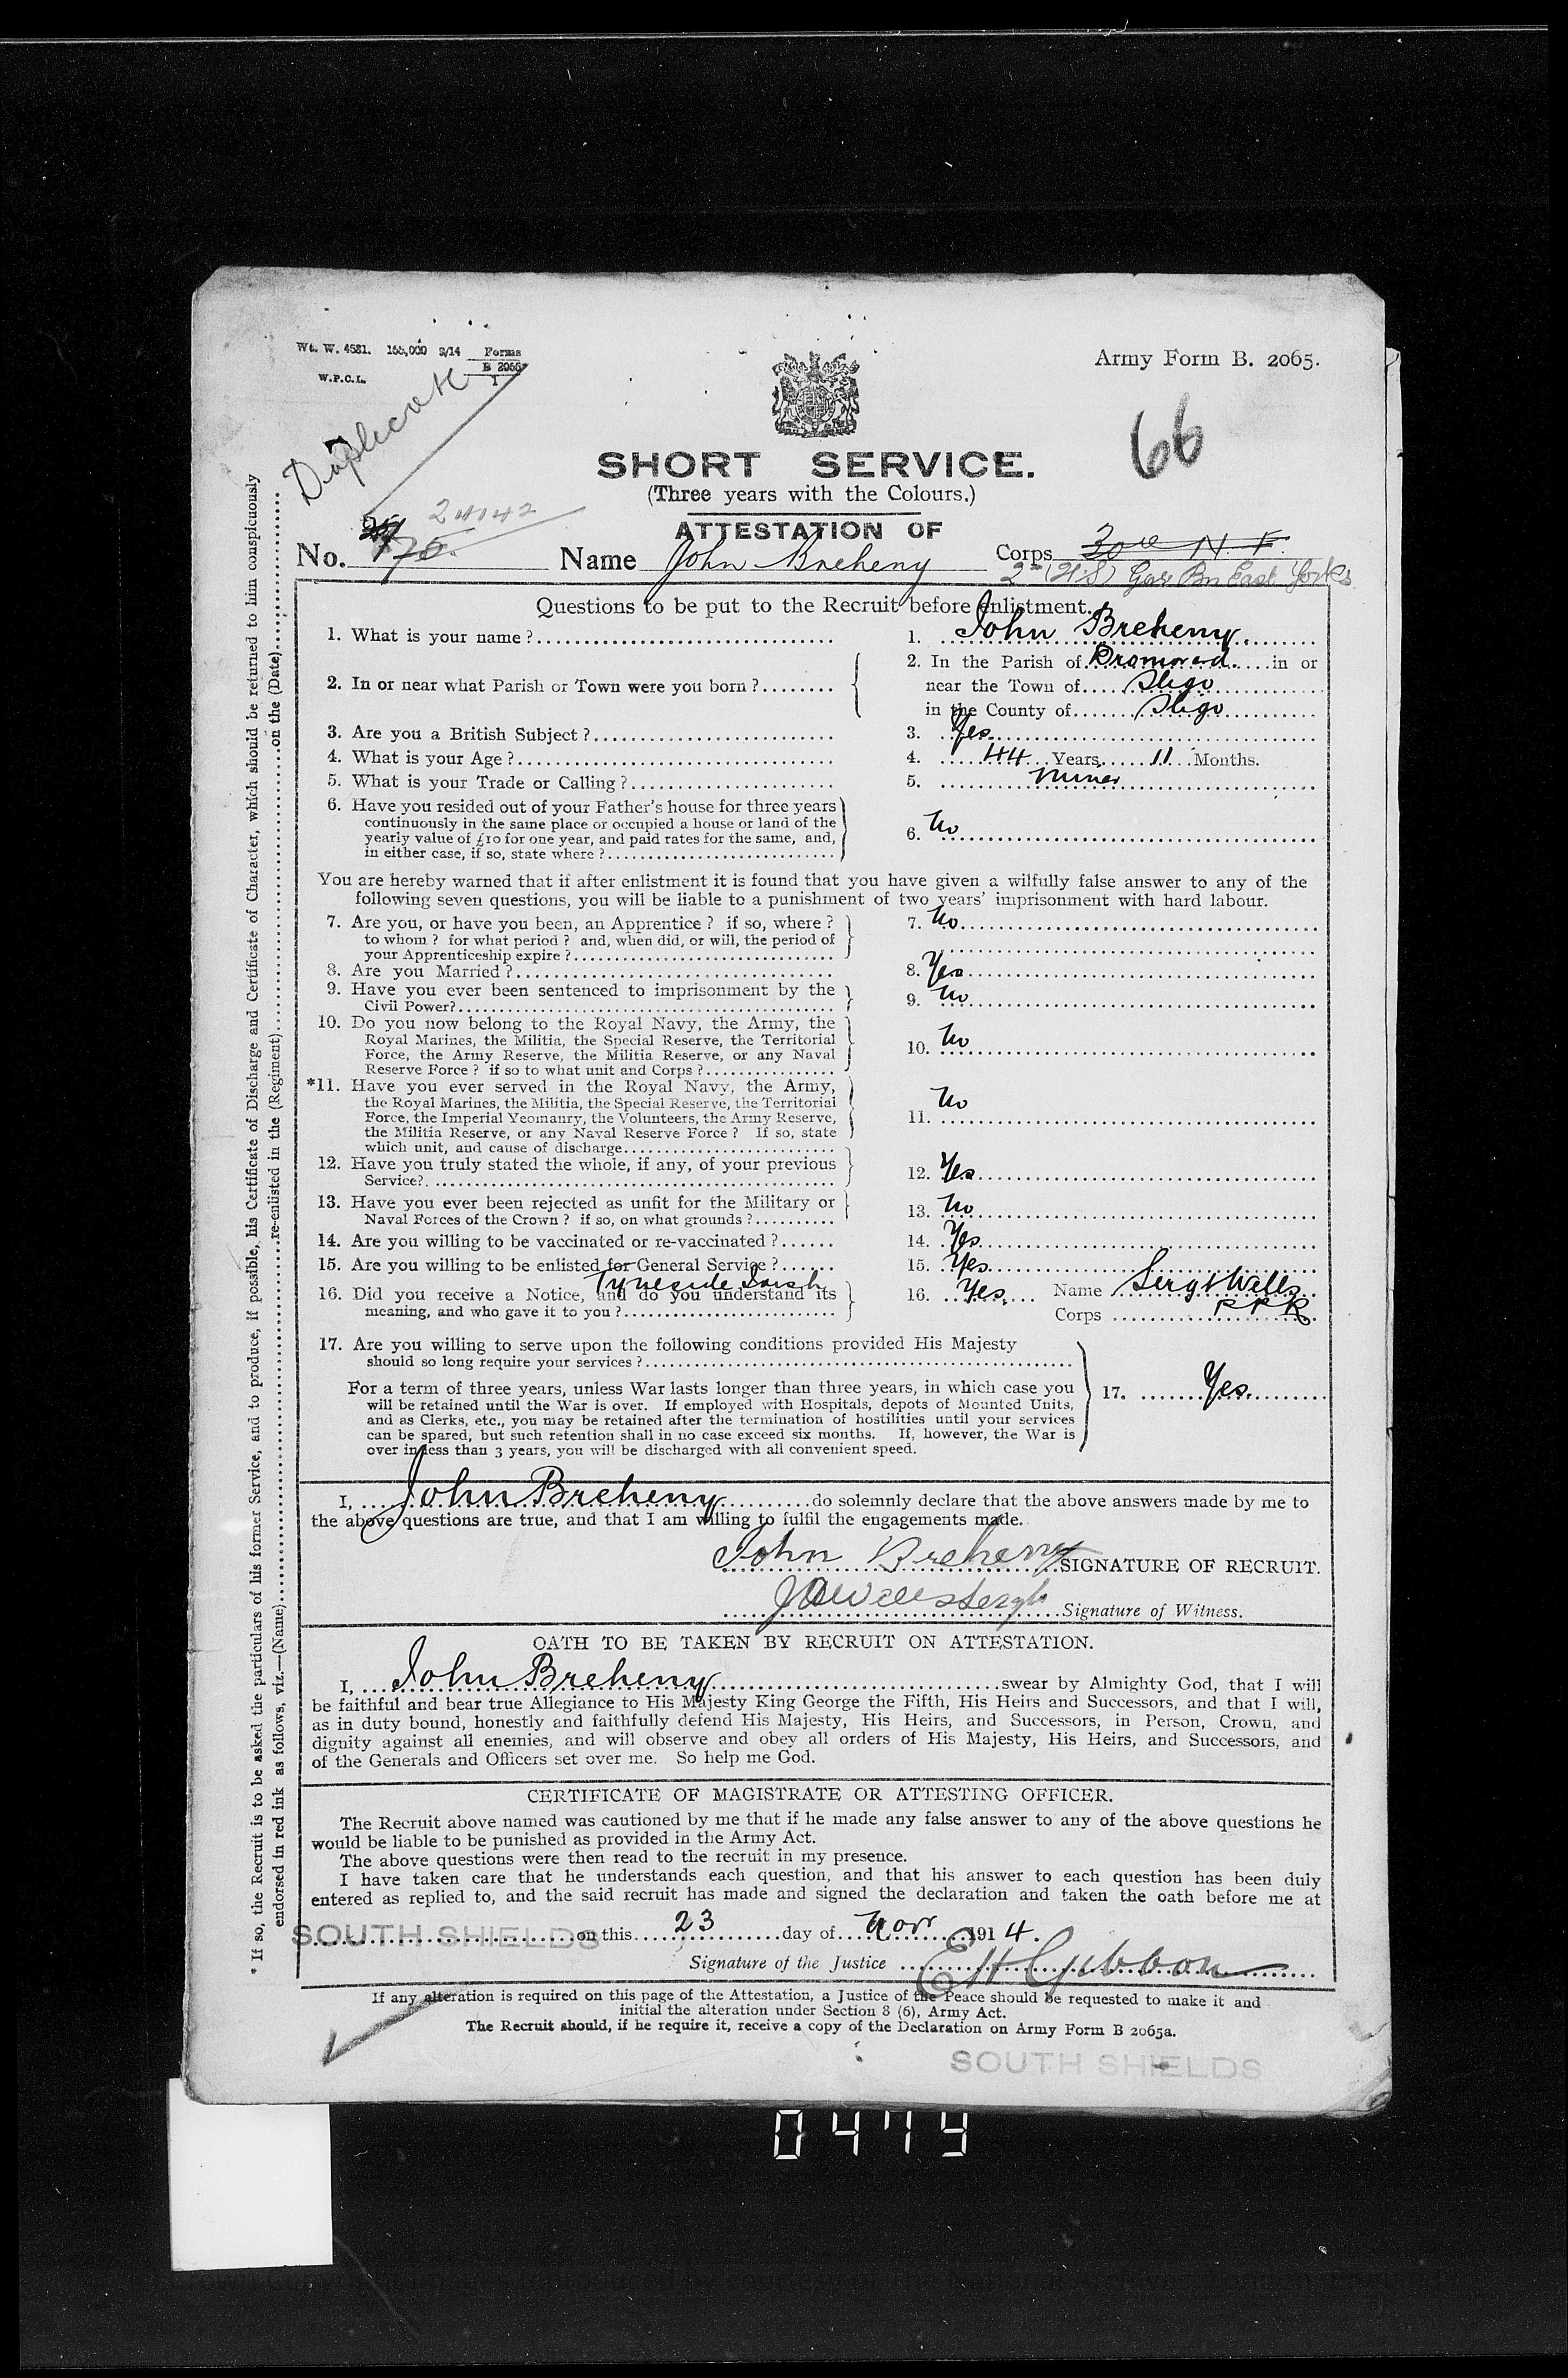 Wt. W. 4581. 165,000 9/14 Forms
B 2065
1
W.P.C.L.
Army Form B. 2065.
Duplicate
66
SHORT SERVICE.
(Three years with the Colours.)
ATTESTATION OF
24142
No. Name John Breheny Corps 30th N. F.
2nd (H.S) Gar Bn East Yorks
Questions to be put to the Recruit before enlistment.
1. What is your name? 1. John Breheny.
2. In or near what Parish or Town were you born? 2. In the Parish of Dromored in or
near the Town of Sligo
in the County of Sligo
3. Are you a British Subject? 3. Yes
4. What is your Age? 4. 44 Years 11 Months.
5. What is your Trade or Calling? 5. Miner
6. Have you resided out of your Father's house for three years
continuously in the same place or occupied a house or land of the
yearly value of £10 for one year, and paid rates for the same, and,
in either case, if so, state where? 6. No
You are hereby warned that if after enlistment it is found that you have given a wilfully false answer to any of the
following seven questions, you will be liable to a punishment of two years' imprisonment with hard labour.
7. Are you, or have you been, an Apprentice? if so, where? 7. No
to whom? for what period? and, when did, or will, the period of
your Apprenticeship expire?
8. Are you Married? 8. Yes
9. Have you ever been sentenced to imprisonment by the
Civil Power? 9. No
10. Do you now belong to the Royal Navy, the Army, the
Royal Marines, the Militia, the Special Reserve, the Territorial
Force, the Army Reserve, the Militia Reserve, or any Naval
Reserve Force? if so to what unit and Corps? 10. No
*11. Have you ever served in the Royal Navy, the Army,
the Royal Marines, the Militia, the Special Reserve, the Territorial
Force, the Imperial Yeomanry, the Volunteers, the Army Reserve,
the Militia Reserve, or any Naval Reserve Force? If so, state
which unit, and cause of discharge 11. No
12. Have you truly stated the whole, if any, of your previous
Service? 12. Yes
13. Have you ever been rejected as unfit for the Military or
Naval Forces of the Crown? if so, on what grounds? 13. No
14. Are you willing to be vaccinated or re-vaccinated? 14. Yes
15. Are you willing to be enlisted for General Service? 15. Yes
Tyneside Irish
16. Did you receive a Notice, and do you understand its
meaning, and who gave it to you? 16. Yes. Name Sergt Wells
Corps R R R
17. Are you willing to serve upon the following conditions provided His Majesty
should so long require your services?
For a term of three years, unless War lasts longer than three years, in which case you
will be retained until the War is over. If employed with Hospitals, depots of Mounted Units,
and as Clerks, etc., you may be retained after the termination of hostilities until your services
can be spared, but such retention shall in no case exceed six months. If, however, the War is
over in less than 3 years, you will be discharged with all convenient speed.
17. Yes.
I, John Breheny do solemnly declare that the above answers made by me to
the above questions are true, and that I am willing to fulfil the engagements made.
John Breheny SIGNATURE OF RECRUIT.
JA Wells Sergt Signature of Witness.
OATH TO BE TAKEN BY RECRUIT ON ATTESTATION.
I, John Breheny swear by Almighty God, that I will
be faithful and bear true Allegiance to His Majesty King George the Fifth, His Heirs and Successors, and that I will,
as in duty bound, honestly and faithfully defend His Majesty, His Heirs, and Successors, in Person, Crown, and
dignity against all enemies, and will observe and obey all orders of His Majesty, His Heirs, and Successors, and
of the Generals and Officers set over me. So help me God.
CERTIFICATE OF MAGISTRATE OR ATTESTING OFFICER.
The Recruit above named was cautioned by me that if he made any false answer to any of the above questions he
would be liable to be punished as provided in the Army Act.
The above questions were then read to the recruit in my presence.
I have taken care that he understands each question, and that his answer to each question has been duly
entered as replied to, and the said recruit has made and signed the declaration and taken the oath before me at
SOUTH SHIELDS on this 23 day of Nov 1914.
Signature of the Justice EH Gibbon
If any alteration is required on this page of the Attestation, a Justice of the Peace should be requested to make it and
initial the alteration under Section 8 (6), Army Act.
The Recruit should, if he require it, receive a copy of the Declaration on Army Form B 2065a.
SOUTH SHIELDS
* If so, the Recruit is to be asked the particulars of his former Service, and to produce, if possible, his Certificate of Discharge and Certificate of Character, which should be returned to him conspicuously
endorsed in red ink as follows, viz.—(Name) re-enlisted in the (Regiment) on the (Date)
0479